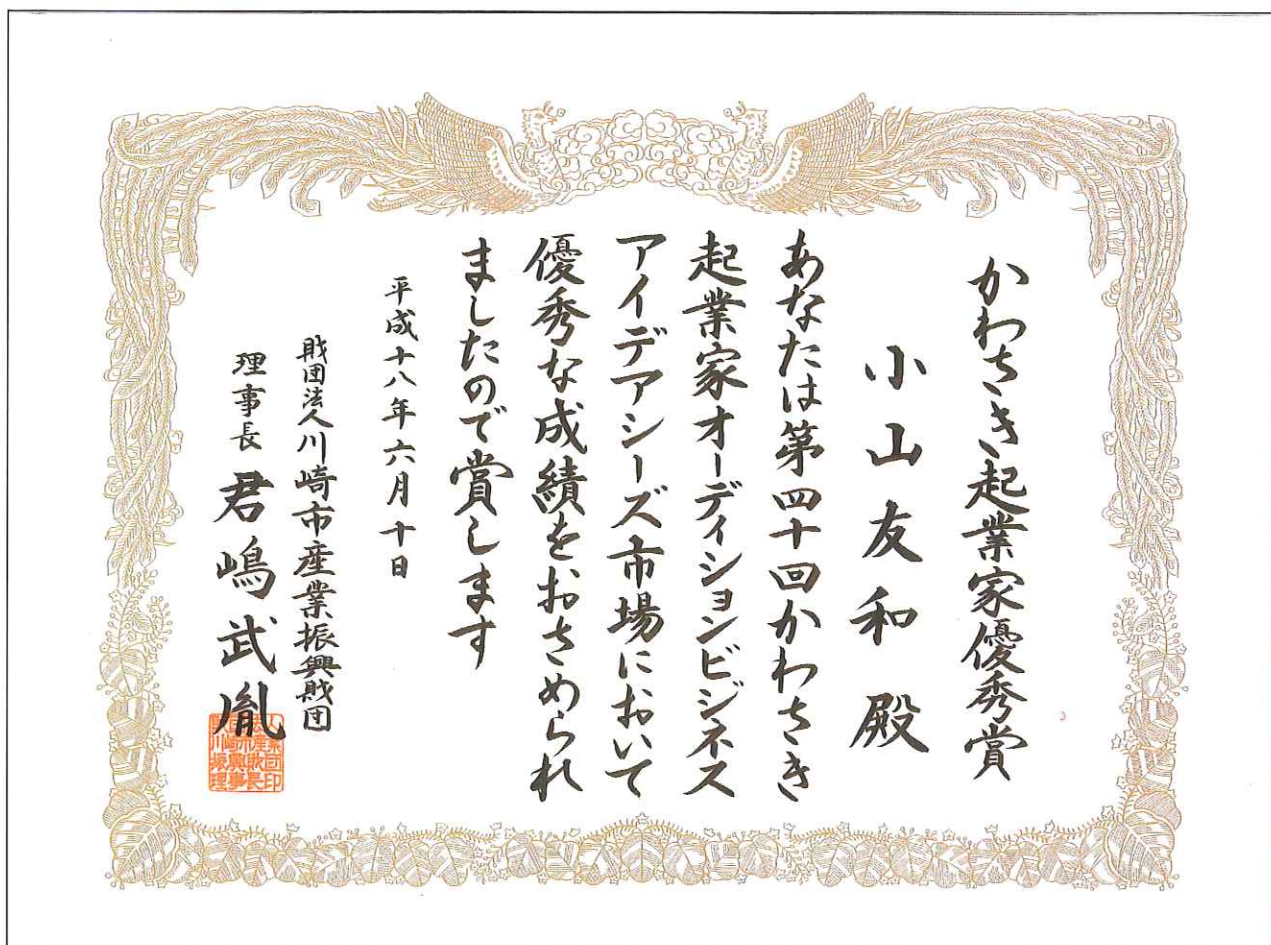 かわさき起業家優秀賞
小山友和 殿
あなたは第四十回かわさき
起業家オーディションビジネス
アイデアシーズ市場において
優秀な成績をおさめられ
ましたので賞します
平成十八年六月十日
財団法人川崎市産業振興財団
理事長 君嶋武胤